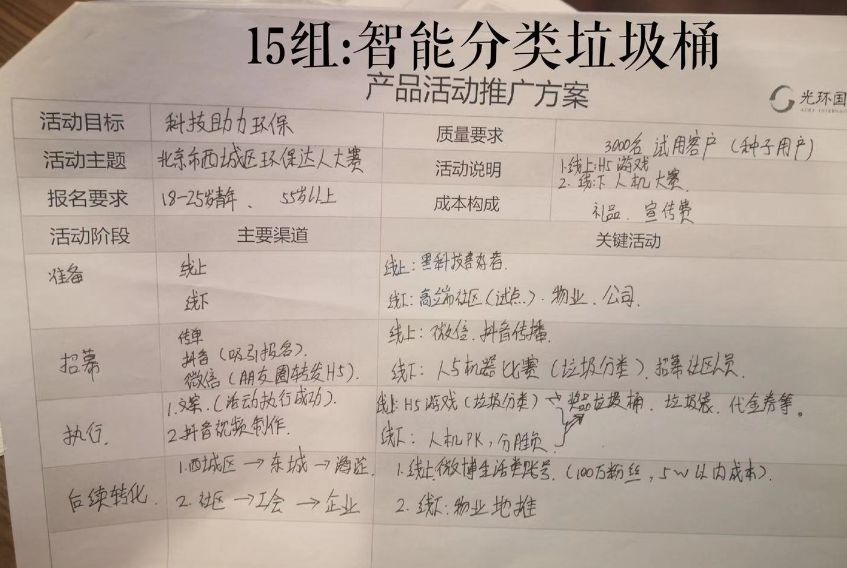 15组:智能分类垃圾桶
产品活动推广方案
光环国
活动目标 科技助力环保 质量要求 3000名 试用客户（种子用户）
活动主题 北京市西城区环保达人大赛 活动说明 1.线上:H5游戏
2.线下人机大赛
报名要求 18-25岁青年、55岁以上 成本构成 礼品、宣传费
活动阶段 主要渠道 关键活动
准备 线上 线上:黑科技爱好者.
线下 线下:高端社区(试点)、物业、公司.
招募 传单 线上:微信、抖音传播.
抖音(吸引报名).
微信(朋友圈转发H5). 线下:人与机器比赛(垃圾分类).招募社区人员.
执行. 1.文案.(活动执行成功). 线上:H5游戏(垃圾分类)→奖品垃圾桶、垃圾袋、代金券等。
2.抖音视频制作. 线下:人机PK,分胜负
后续转化. 1.西城区→东城→海淀 1.线上微博生活类账号.(100万粉丝,5W以内成本).
2.社区→工会→企业 2.线下:物业地推